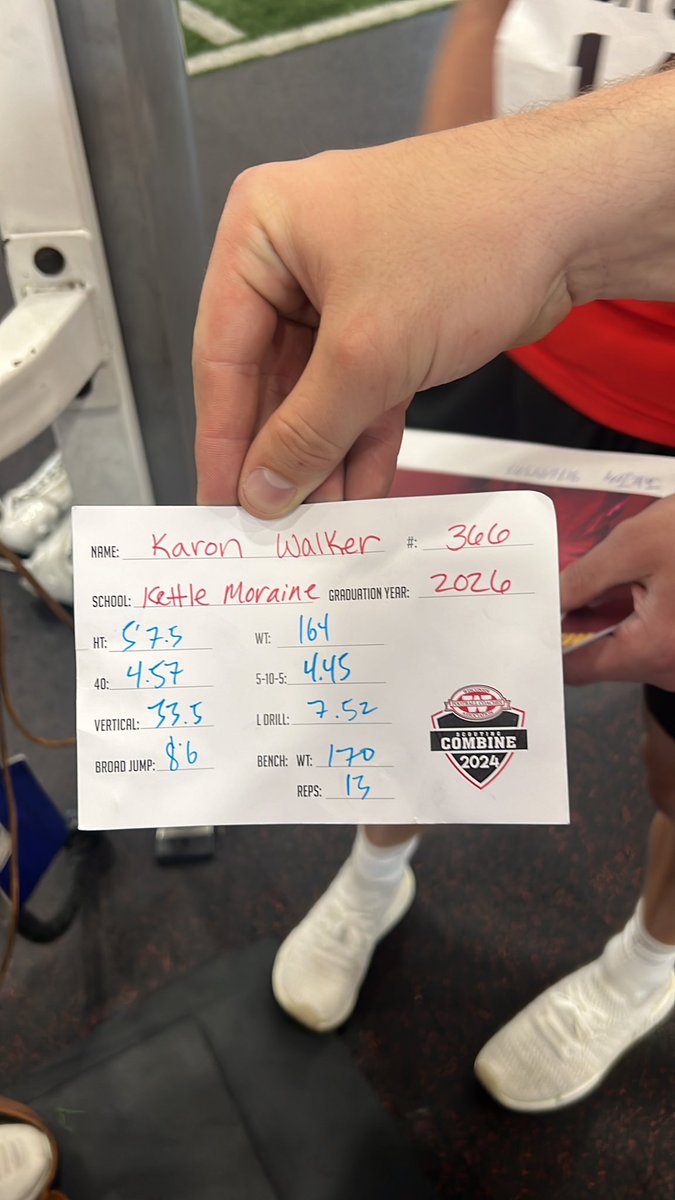 NAME: Karon Walker #: 366
SCHOOL: Kettle Moraine GRADUATION YEAR: 2026
HT: 5'7.5 WT: 164
40: 4.57 5-10-5: 4.45
VERTICAL: 33.5 L DRILL: 7.52
BROAD JUMP: 8'6 BENCH: WT: 170
REPS: 13
WISCONSIN
FOOTBALL COACHES
ASSOCIATION
SCOUTING
COMBINE
2024